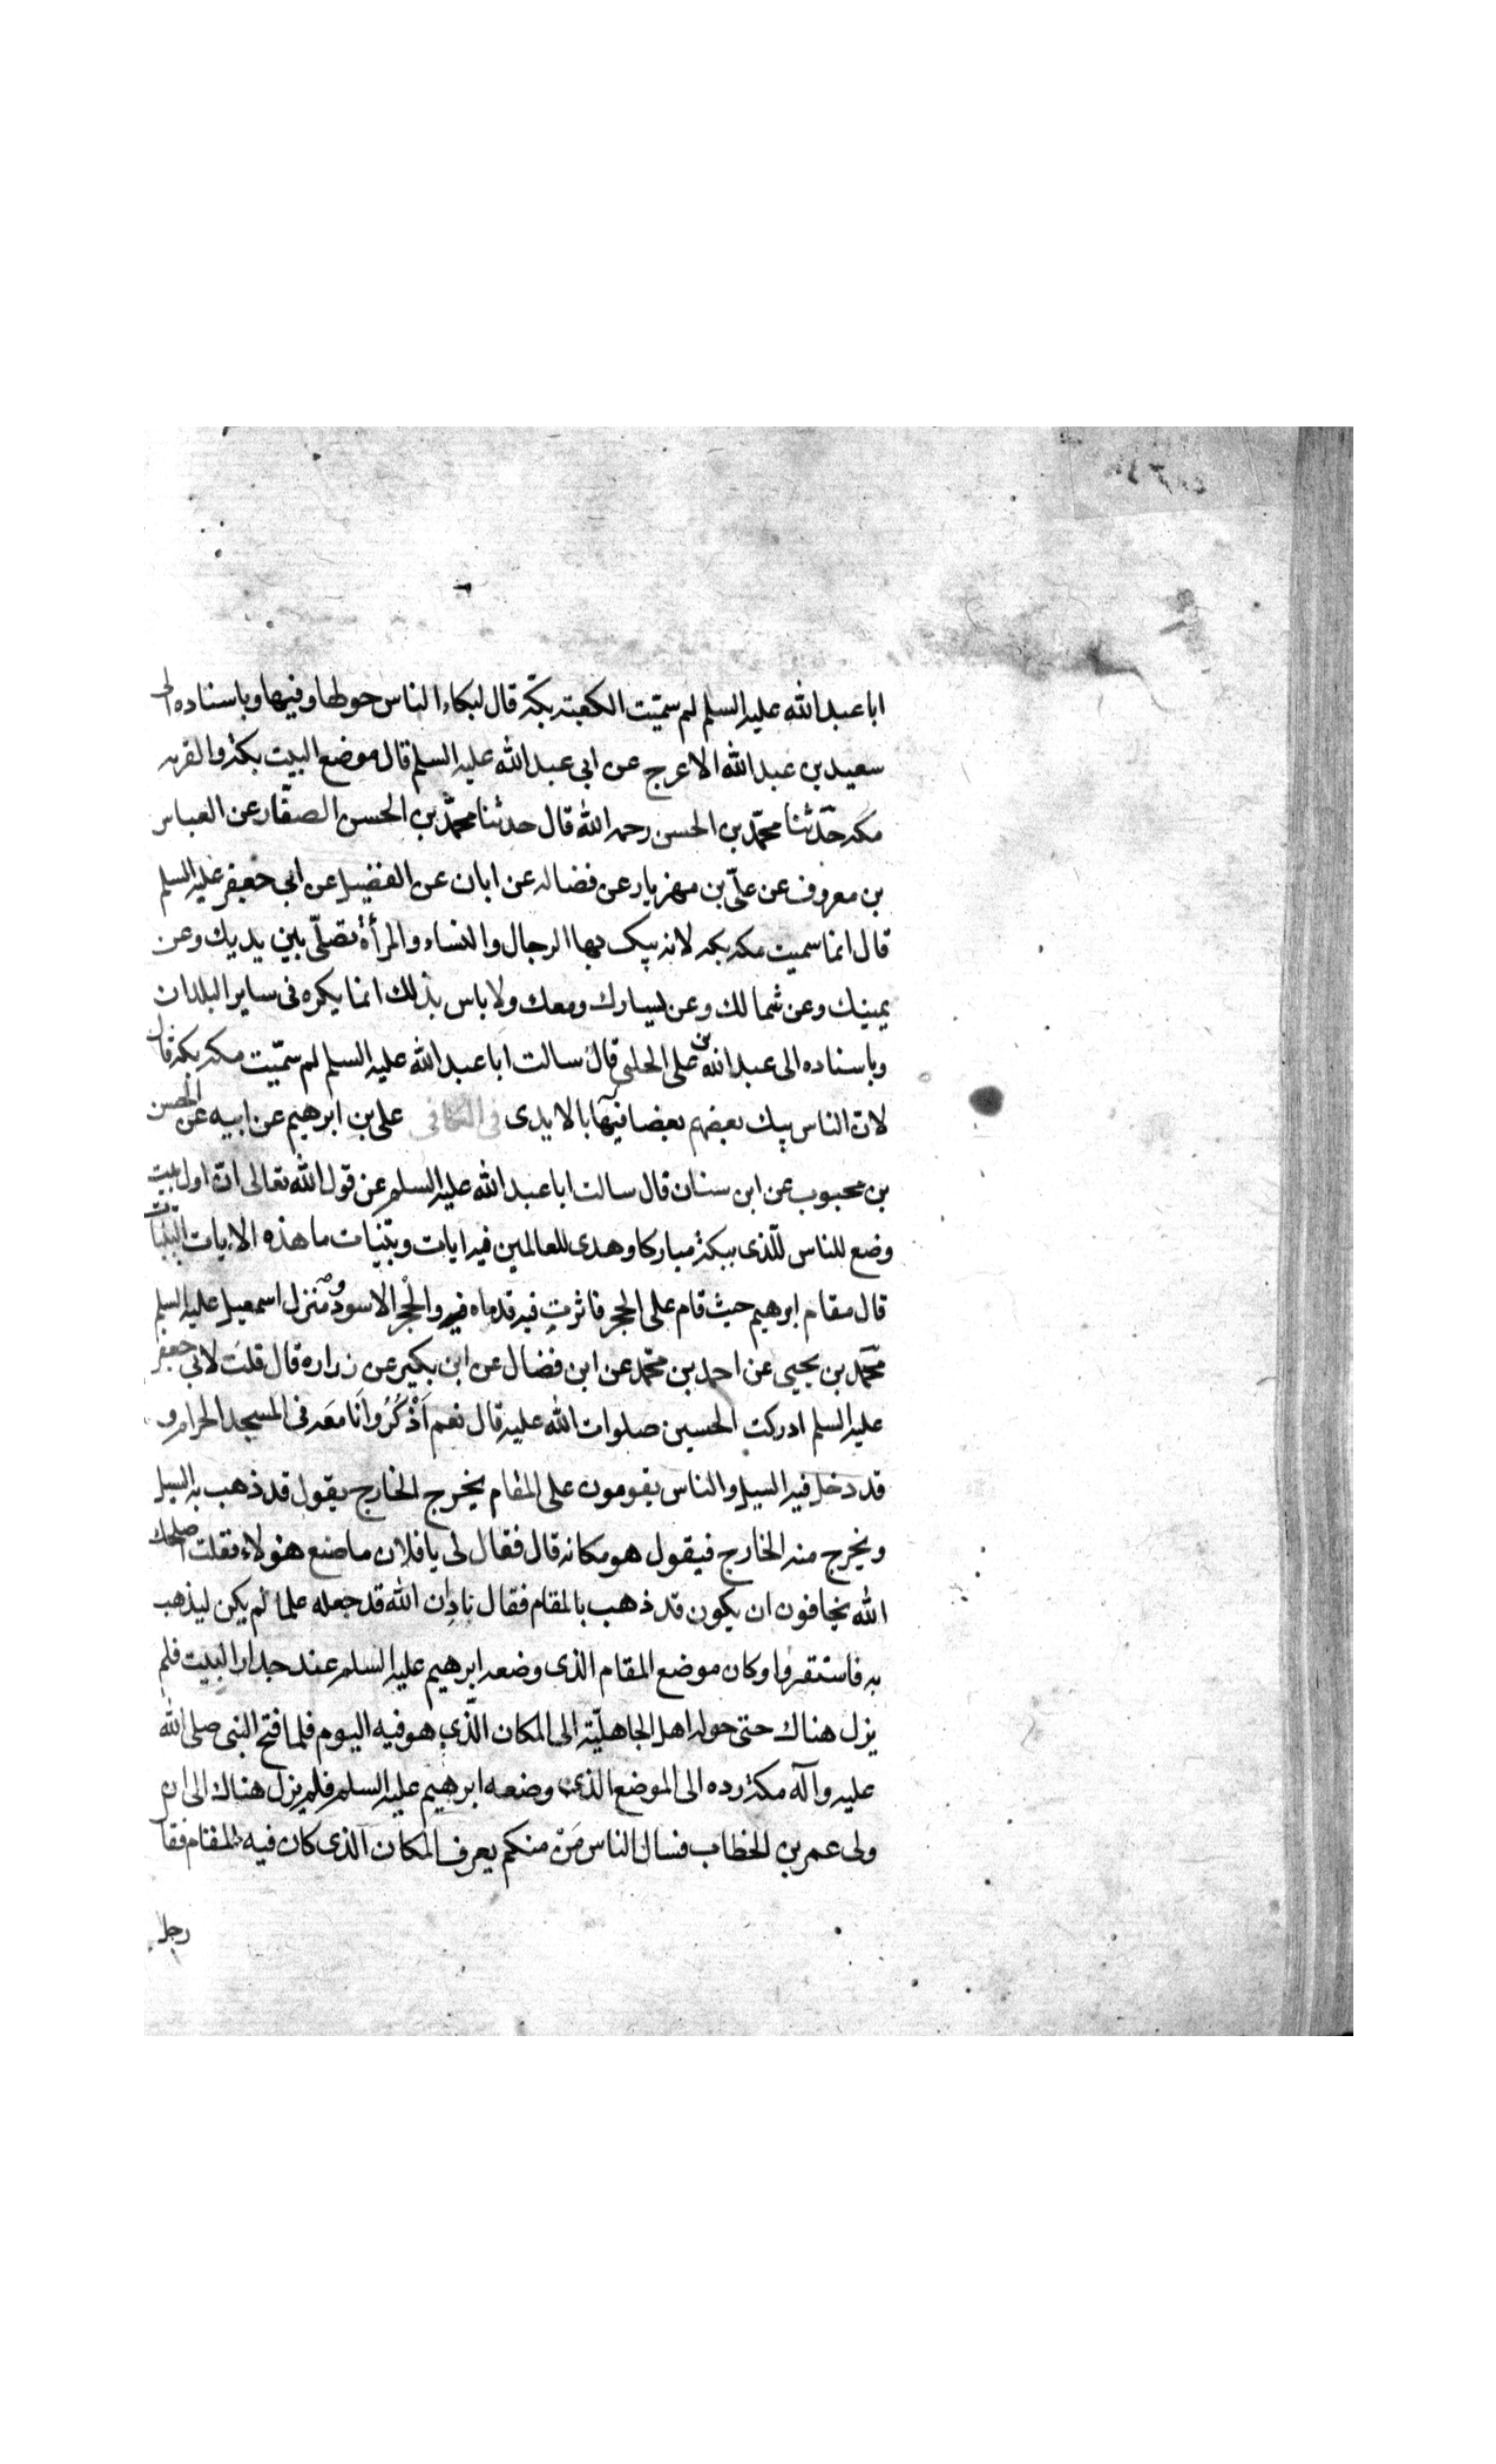 ابا عبد الله عليه السلم لم سمّيت الكعبته بكّة قال لبكاء الناس حولها وفيها وباسناده الى
سعيد بن عبد الله الاعرج عن ابى عبد الله عليه السلم قال موضع البيت بكة والقريه
مكه حدّثنا محمّد بن الحسن رحمه الله قال حدثنا محمّد بن الحسن الصفّار عن العباس
بن معروف عن علىّ بن مهزيار عن فضاله عن ابان عن الفضيل عن ابى جعفر عليه السلم
قال انما سميت مكه بكه لانه يبك بها الرجال والنساء والمرأة تصلّى بين يديك وعن
يمينك وعن شمالك وعن يسارك ومعك ولا باس بذلك انما يكره فى ساير البلدان
وباسناده الى عبد الله بن على الحلبى قال سالت ابا عبد الله عليه السلم لم سمّيت مكه بكة قال
لان الناس يبك بعضهم بعضا فيها بالايدى فى الكافى على بن ابرهيم عن ابيه عن الحسن
بن محبوب عن ابن سنان قال سالت ابا عبد الله عليه السلم عن قول الله تعالى ان اول بيت
وضع للناس للّذى ببكة مباركا وهدى للعالمين فيه ايات وبيّنات ما هذه الايات البيّنات
قال مقام ابرهيم حيث قام على الحجر فاثرت فيه قدماه فيه والحجر الاسود ومنزل اسمعيل عليه السلم
محمّد بن يحيى عن احمد بن محمّد عن ابن فضال عن ابن بكير عن زراره قال قلت لابى جعفر
عليه السلم ادركت الحسين صلوات الله عليه قال نعم اَذْكُرُ واَنا معَه فى المسجد الحرام و
قد دخل فيه السيل والناس يقومون على المقام يخرج الخارج يقول قد ذهب به السيل
ويخرج منه الخارج فيقول هو مكانه قال فقال لى يا فلان ما صنع هؤلاء فقلت اصلحك
الله يخافون ان يكون قد ذهب بالمقام فقال ناد ان الله قد جعله علما لم يكن ليذهب
به فاستقروا وكان موضع المقام الذى وضعه ابرهيم عليه السلم عند جدار البيت فلم
يزل هناك حتى حوله اهل الجاهليّة الى المكان الّذى هو فيه اليوم فلما فتح النبى صلى الله
عليه وآله مكة رده الى الموضع الذى وضعه ابرهيم عليه السلم فلم يزل هناك الى ان
ولى عمر بن الخطاب فسال الناس مَنْ منكم يعرف المكان الذى كان فيه المقام فقا
رجل